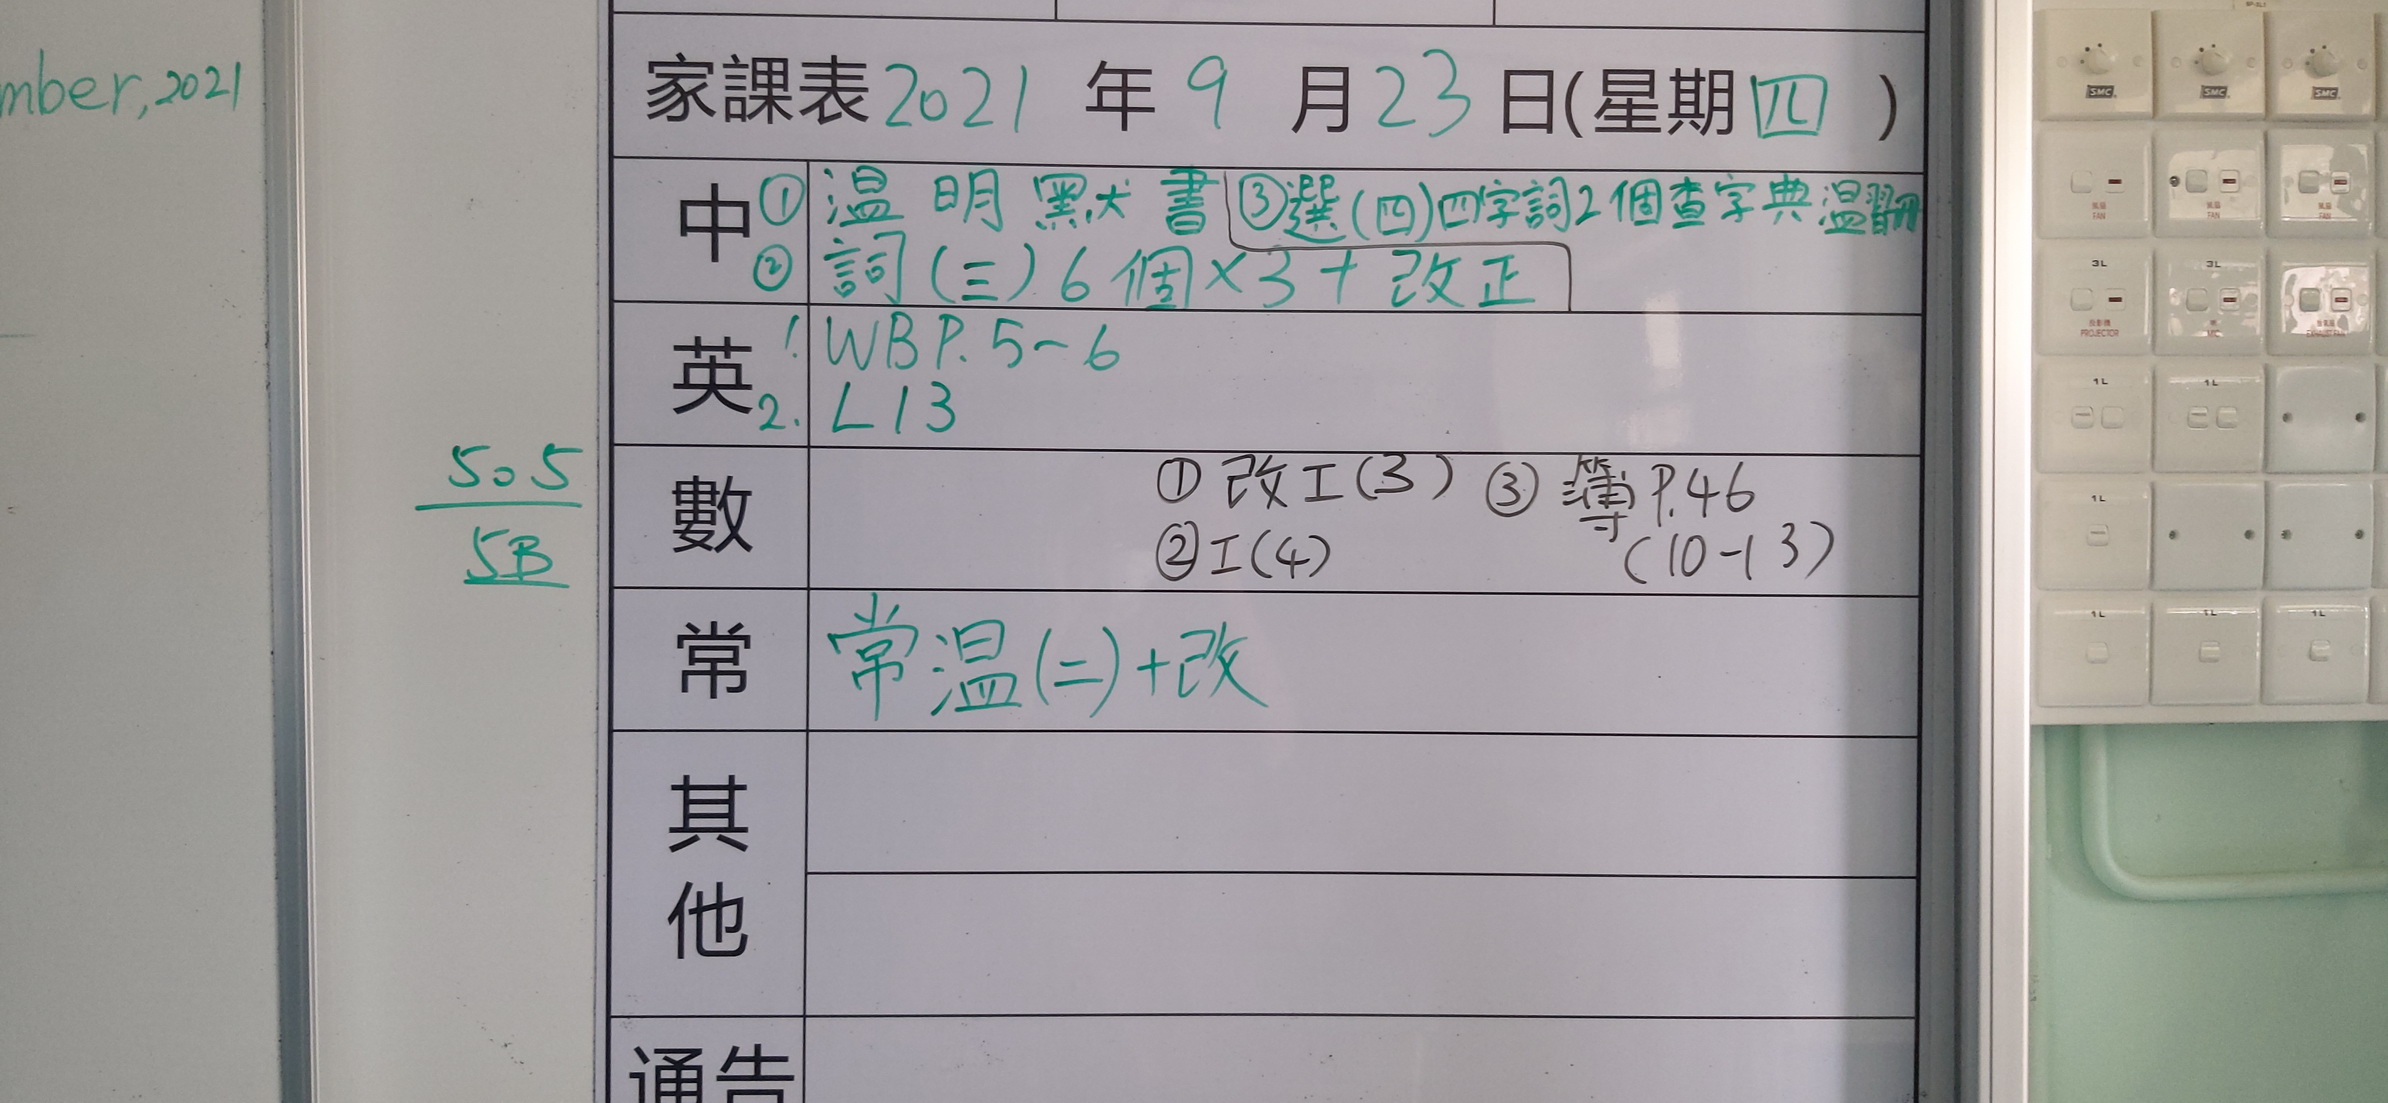 mber, 2021
家課表 2021 年 9 月 23 日(星期四 )
中
① 温 明 默 書 ③選(四)四字詞2個查字典温習冊
② 詞(三)6個×3+改正
英
1. WB P.5-6
2. L13
505
5B
數
① 改工(3) ③ 簿 P.46
② 工(4) (10-13)
常
常温(二)+改
其
他
通告
SMC SMC SMC
FAN FAN FAN
3L 3L
投影機
PROJECTOR MIC EXHAUST FAN
1L 1L
1L
1L 1L 1L